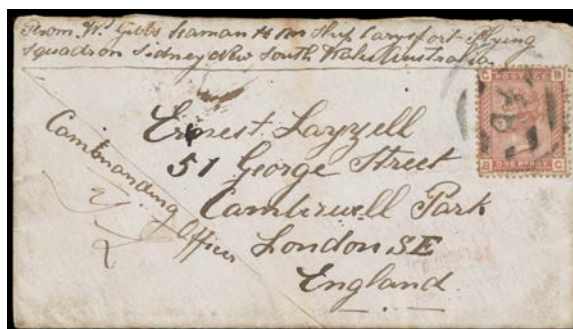 From Wm Gibbs Seaman H M Ship Carysfort Flying
Squadron Sidney New South Wales Australia
Commanding Officer
Ernest Layzell
51 George Street
Camberwell Park
London SE
England
C POSTAGE B
B ONE PENNY C